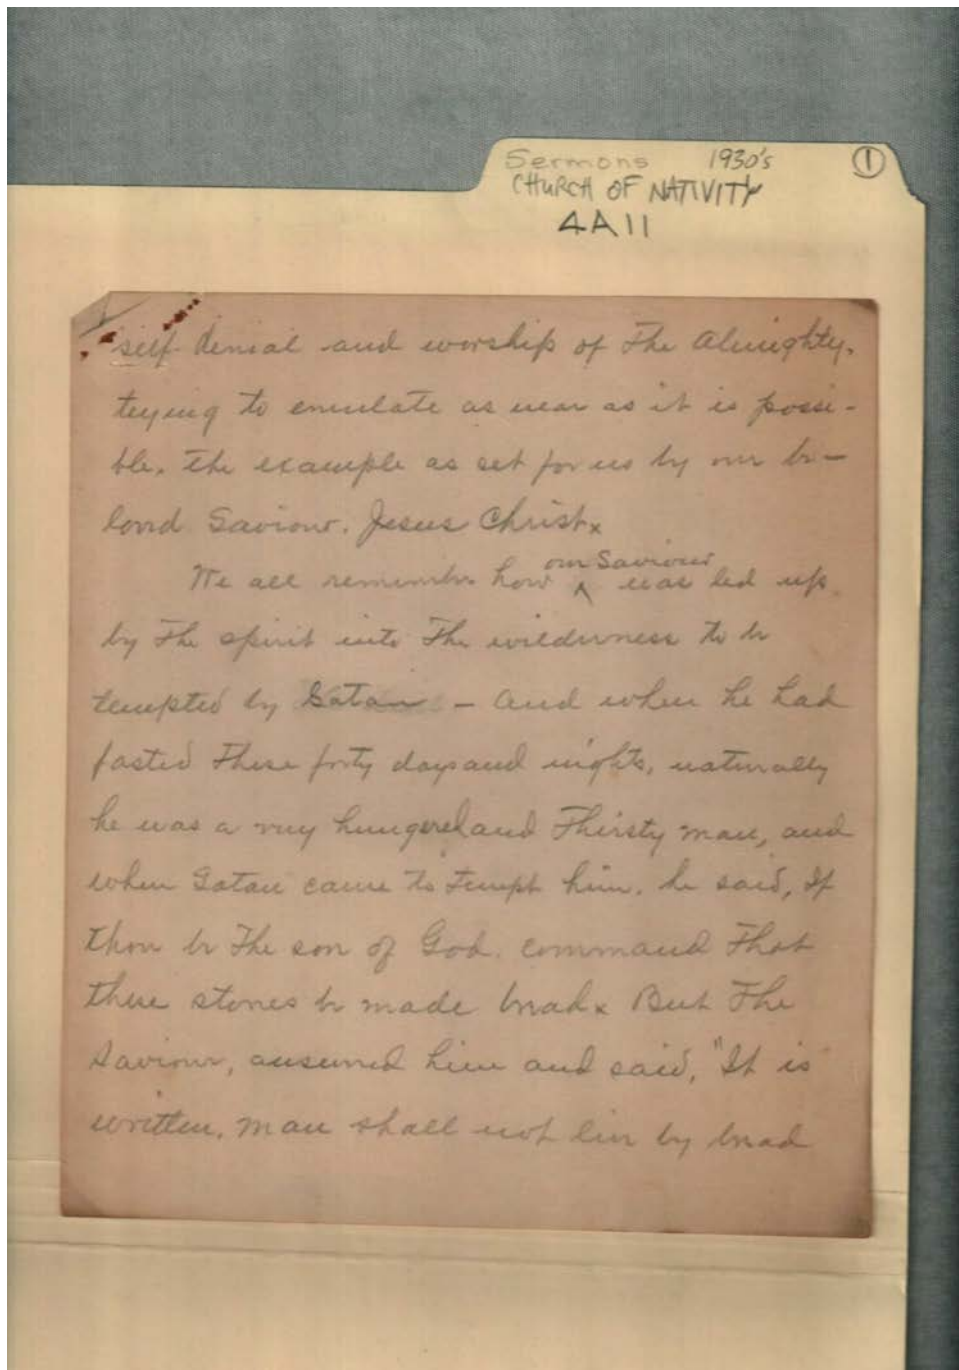 Sermons 1930's ①
CHURCH OF NATIVITY
4A11
self denial and worship of The Almighty,
trying to emulate as near as it is possi-
ble, the example as set for us by our be-
loved Saviour. Jesus Christ x
We all remember how our Saviour was led up
by The spirit into The wilderness to be
tempted by Satan - and when he had
fasted These forty days and nights, naturally
he was a very hungered and Thirsty man, and
when Satan came to tempt him, he said, If
thou be The son of God. command That
these stones be made bread x But The
Saviour, answered him and said, "It is
written, man shall not live by bread